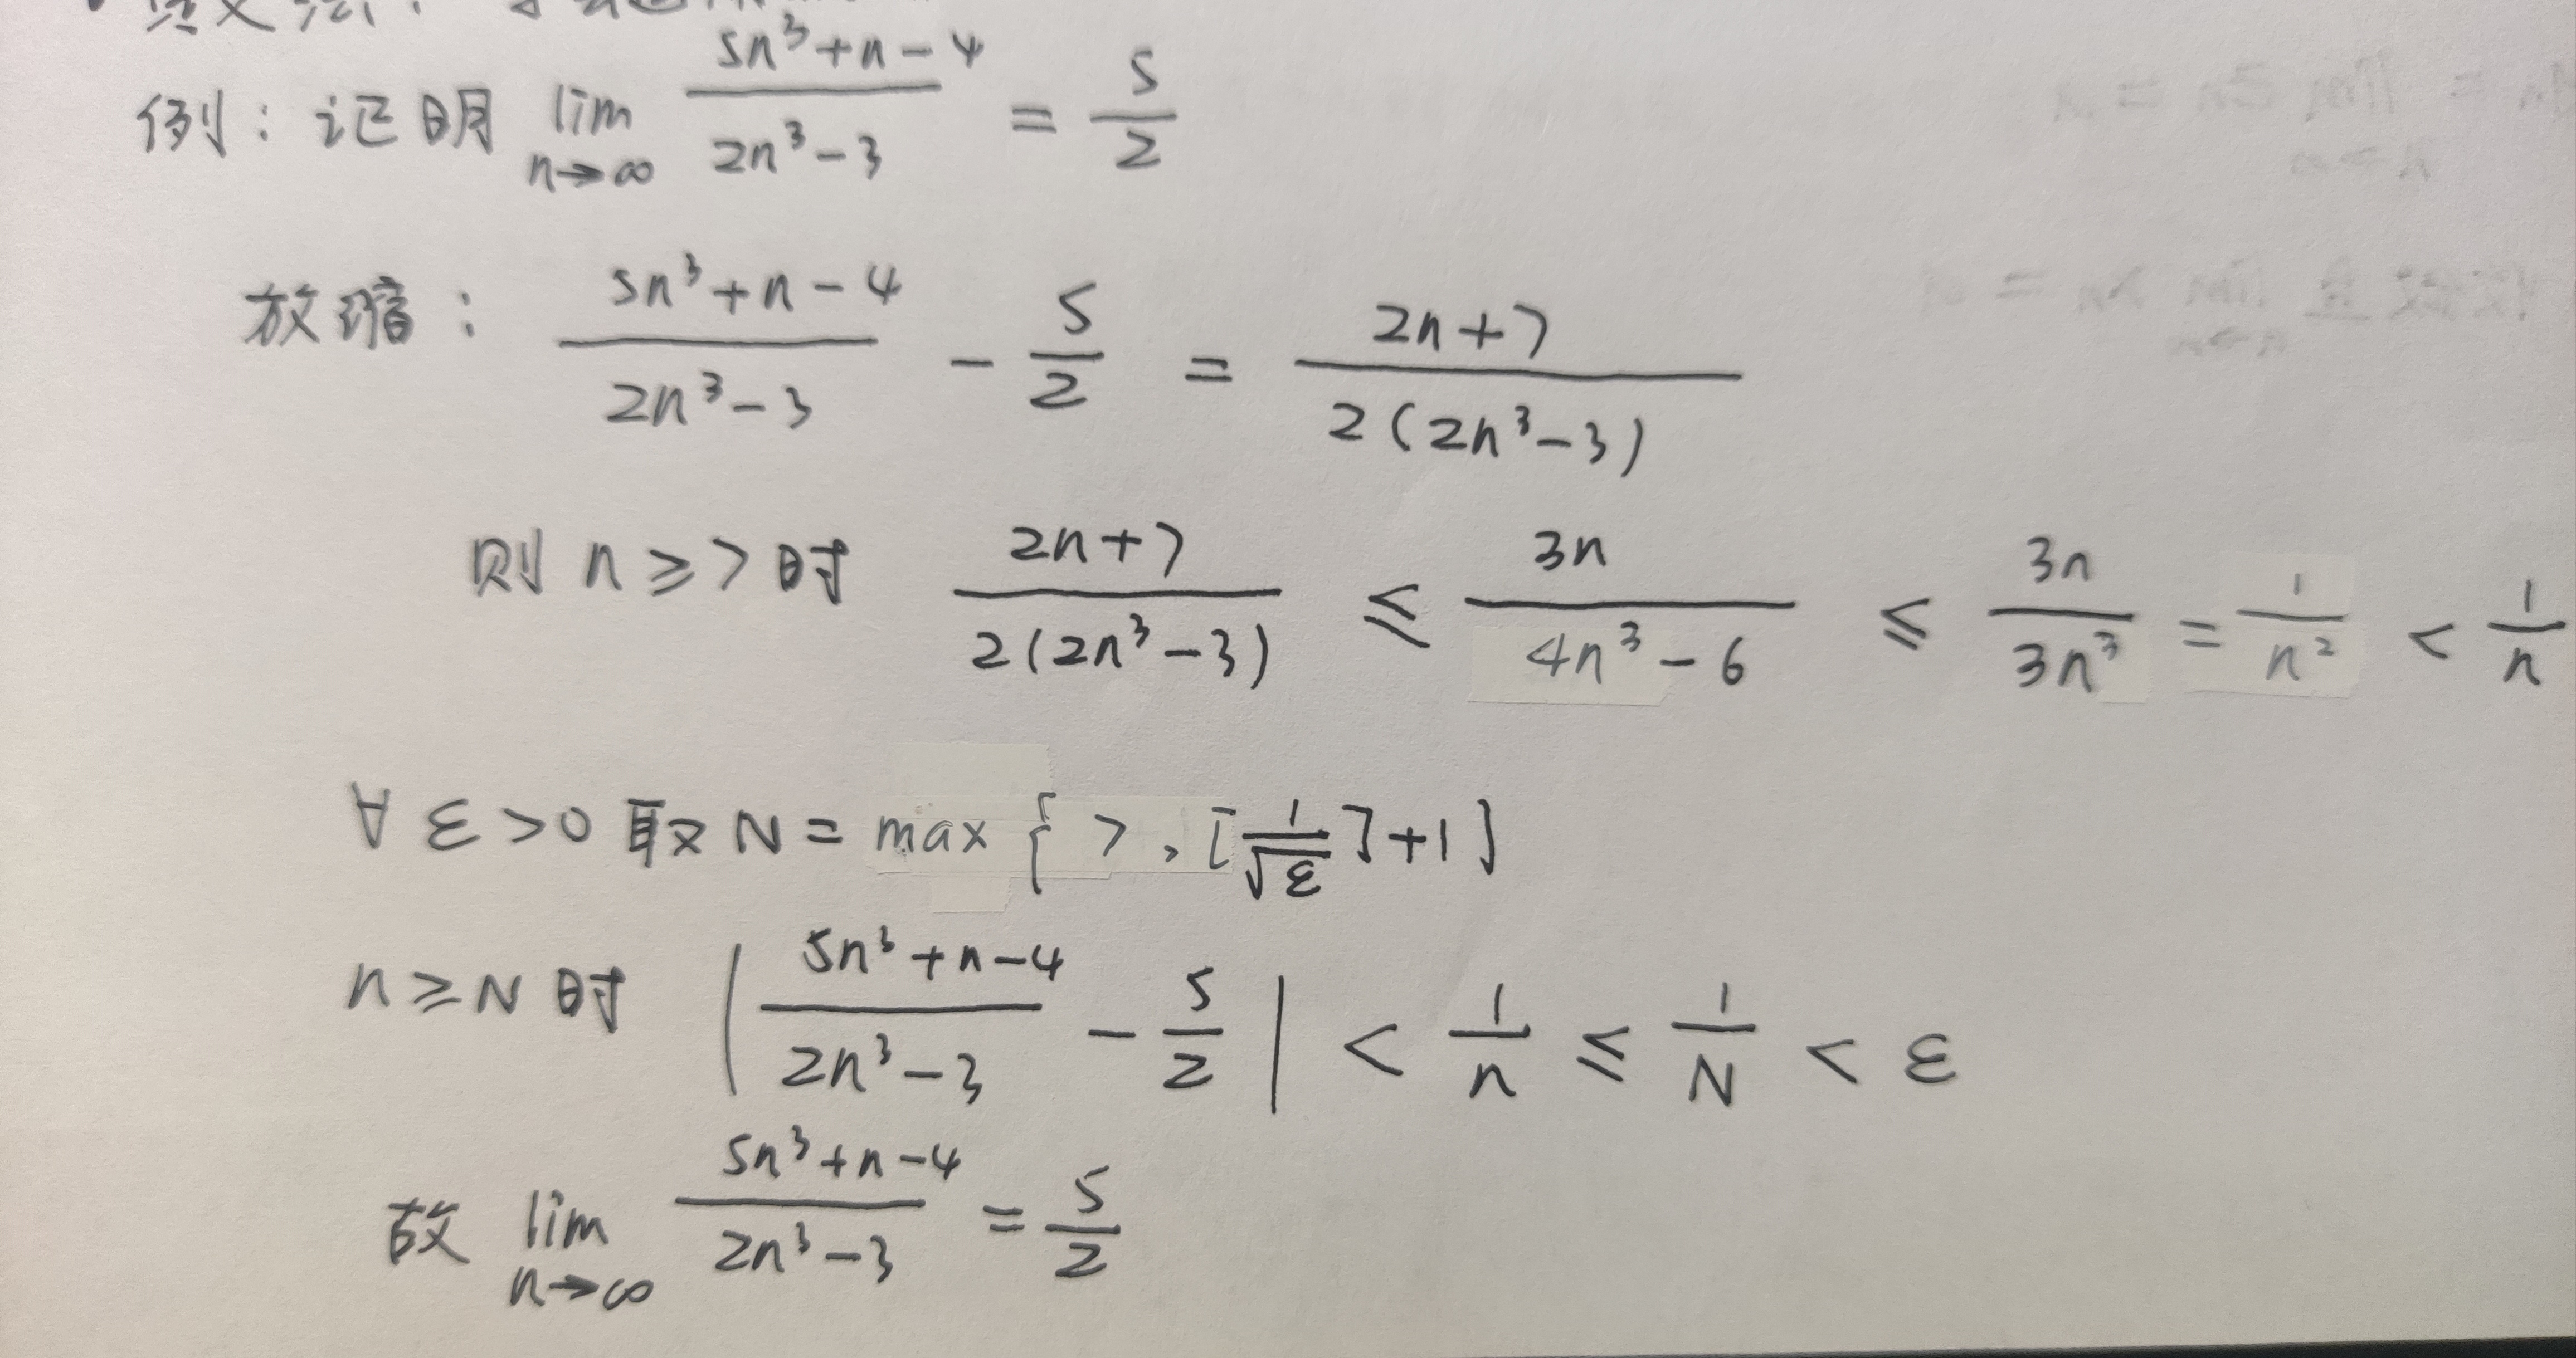 例：证明 lim n→∞ (5n³+n-4)/(2n³-3) = 5/2
放缩： (5n³+n-4)/(2n³-3) - 5/2 = (2n+7)/(2(2n³-3))
则 n≥7时 (2n+7)/(2(2n³-3)) ≤ 3n/(4n³-6) ≤ 3n/(3n³) = 1/n² < 1/n
∀ε>0 取N = max{7, [1/√ε]+1}
n≥N时 |(5n³+n-4)/(2n³-3) - 5/2| < 1/n ≤ 1/N < ε
故 lim n→∞ (5n³+n-4)/(2n³-3) = 5/2